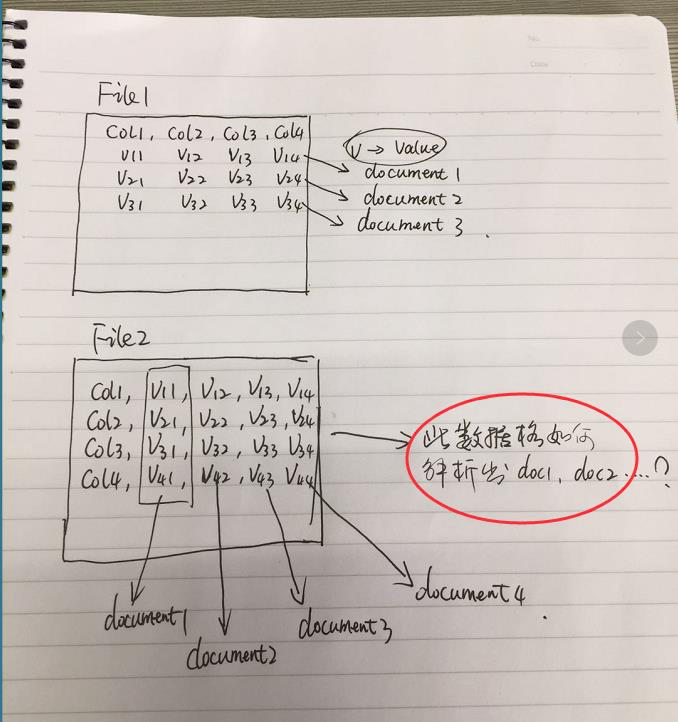 No.
Date
File1
Col1, Col2, Col3, Col4
V11 V12 V13 V14
V21 V22 V23 V24
V31 V32 V33 V34
V → Value
document 1
document 2
document 3
File2
Col1, V11, V12, V13, V14
Col2, V21, V22, V23, V24
Col3, V31, V32, V33 V34
Col4, V41, V42, V43 V44
此数据格如何
解析出 doc1, doc2 ....?
document1
document2
document3
document4